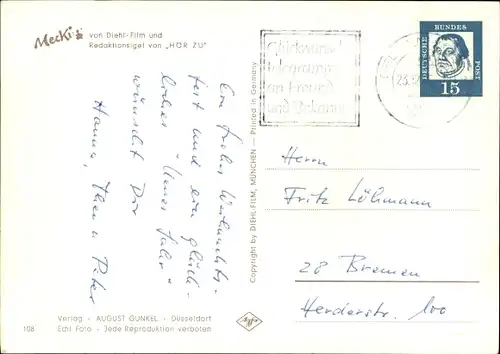 Mecki von Diehl-Film und
Redaktionsigel von „HÖR ZU"
Ein frohes Weihnachts-
fest und ein glück-
liches "Neues Jahr"
wünscht Dir
Hanna, Theo u. Peter
Verlag · AUGUST GUNKEL · Düsseldorf
108 Echt Foto · Jede Reproduktion verboten
Copyright by DIEHL-FILM, MÜNCHEN — Printed in Germany
Glückwunsch
telegramme
an Freund
und Bekannte
DEUTSCHE
BUNDES
POST
15
Herrn
Fritz Löhmann
28 Bremen
Herderstr. 100